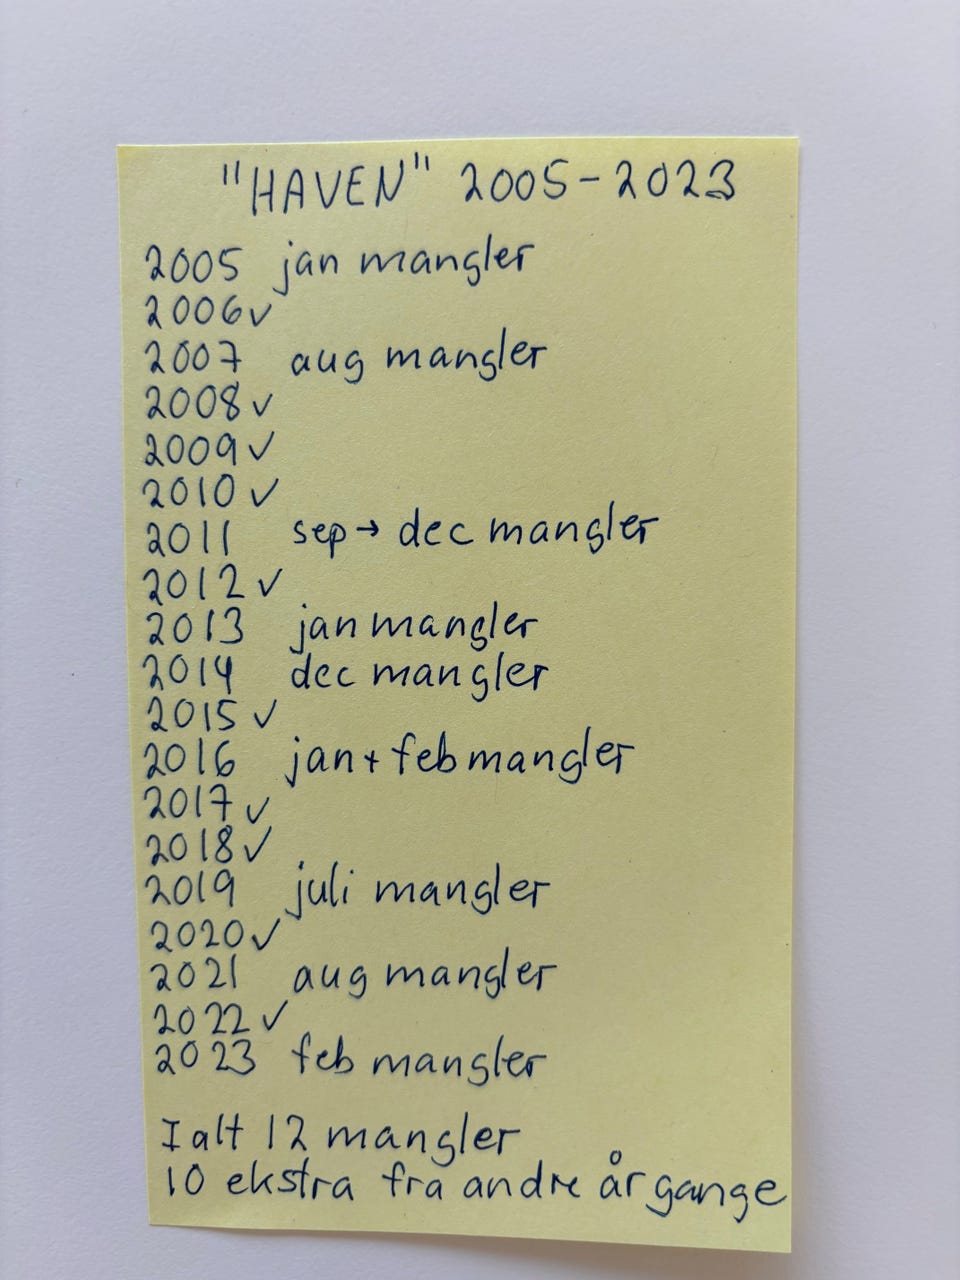 "HAVEN" 2005-2023
2005 jan mangler
2006 ✓
2007 aug mangler
2008 ✓
2009 ✓
2010 ✓
2011 sep → dec mangler
2012 ✓
2013 jan mangler
2014 dec mangler
2015 ✓
2016 jan + feb mangler
2017 ✓
2018 ✓
2019 juli mangler
2020 ✓
2021 aug mangler
2022 ✓
2023 feb mangler
I alt 12 mangler
10 ekstra fra andre årgange